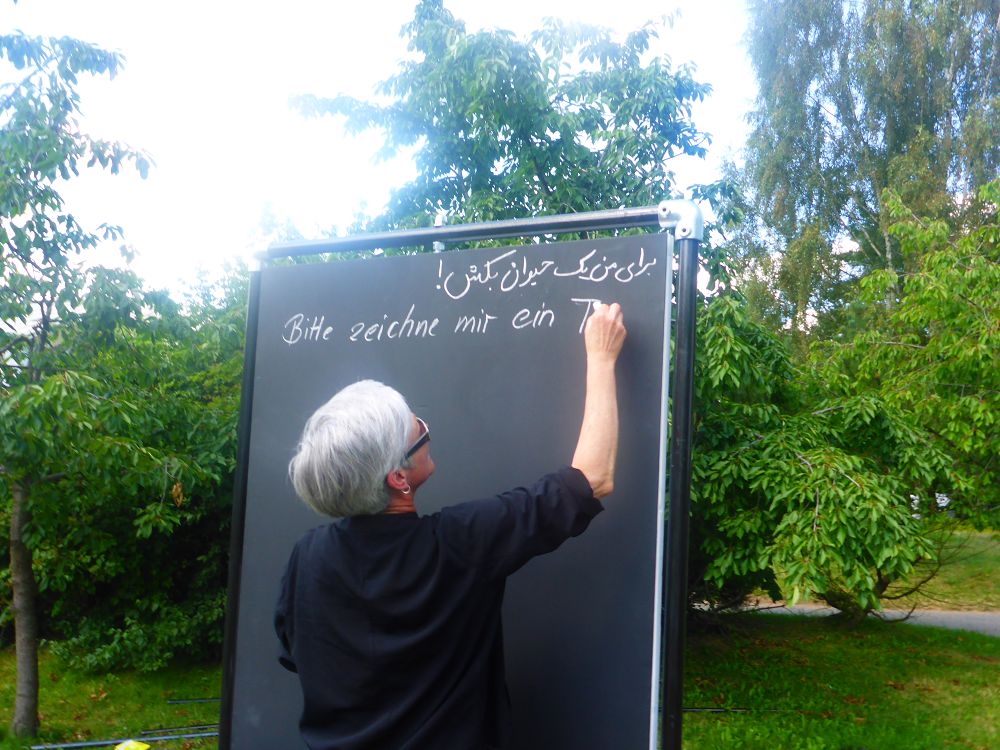 برای من یک حیوان بکش!
Bitte zeichne mir ein T